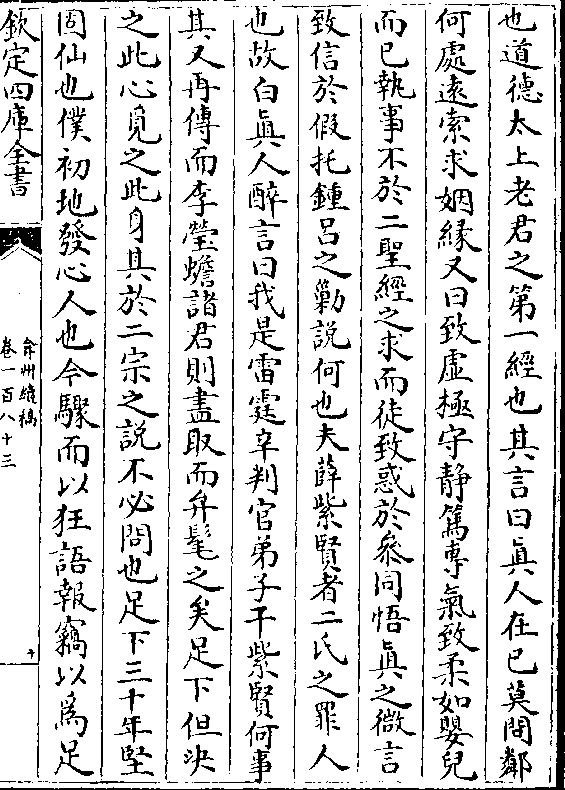 也道德太上老君之第一經也其言曰眞人在已莫問鄰
何處逺索求姻緣又曰致虛極守靜篤專氣致柔如嬰兒
而已執事不於二聖經之求而徒致惑於叅同悟眞之微言
致信於假托鍾吕之勦說何也夫薛紫賢者二氏之罪人
也故白眞人醉言曰我是雷霆辛判官弟子干紫賢何事
其又再傳而李瑩蟾諸君則盡取而弁髦之矣足下但决
之此心覓之此身其於二宗之說不必問也足下三十年堅
固仙也僕初地發心人也今驟而以狂語報竊以爲足
欽定四庫全書
弇州續稿
卷一百八十三
十